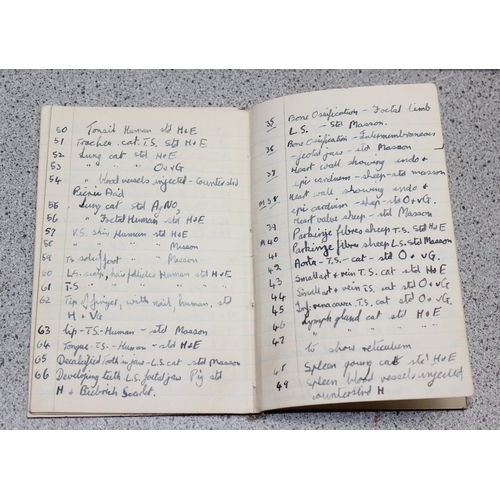 50 Tonsil Human std H+E
51 Trachea cat. T.S. Std H+E
52 Lung cat std H+E
53 " " " O+VG
54 " blood vessels injected - counterstd
Picric Acid
55 Lung cat std AgNO3
56 " Foetal Human std H+E
57 V.S. Skin Human std H+E
58 " " " " Masson
59 To sole foot " Masson
60 L.S. skin, hair follicles Human std H+E
61 T.S " " " " "
62 Tip of finger, with nail, human, std
H + VG
63 Lip - T.S. - Human - std Masson
64 Tongue T.S. - Human - std H+E
65 Decalcified tooth in jaw - L.S. cat std Masson
66 Developing teeth L.S. foetal jaw Pig std
H + Biebrich Scarlet.
35 Bone Ossification - Foetal limb
L.S. - Std Masson.
36 Bone Ossification - Intermembraneous
- foetal jaw - std Masson
37 Heart wall showing endo +
epicardium - sheep - std masson
M38 Heart wall showing endo +
epicardium - sheep - std O+VG.
39 Heart valve sheep - std Masson
M40 Parkinje fibres sheep T.S. Std H+E
41 Parkinje fibres sheep L.S. std Masson
42 Aorta - T.S. - cat - std O + VG.
43 Small art + vein T.S. cat std H+E
44 Small art + vein T.S. cat std O+VG
45 Inf. vena cava T.S. cat std O+VG.
46 Lymph gland cat std H+E
47 " " " "
to show reticulum
48 Spleen young cat std H+E
49 Spleen blood vessels injected
counterstd H